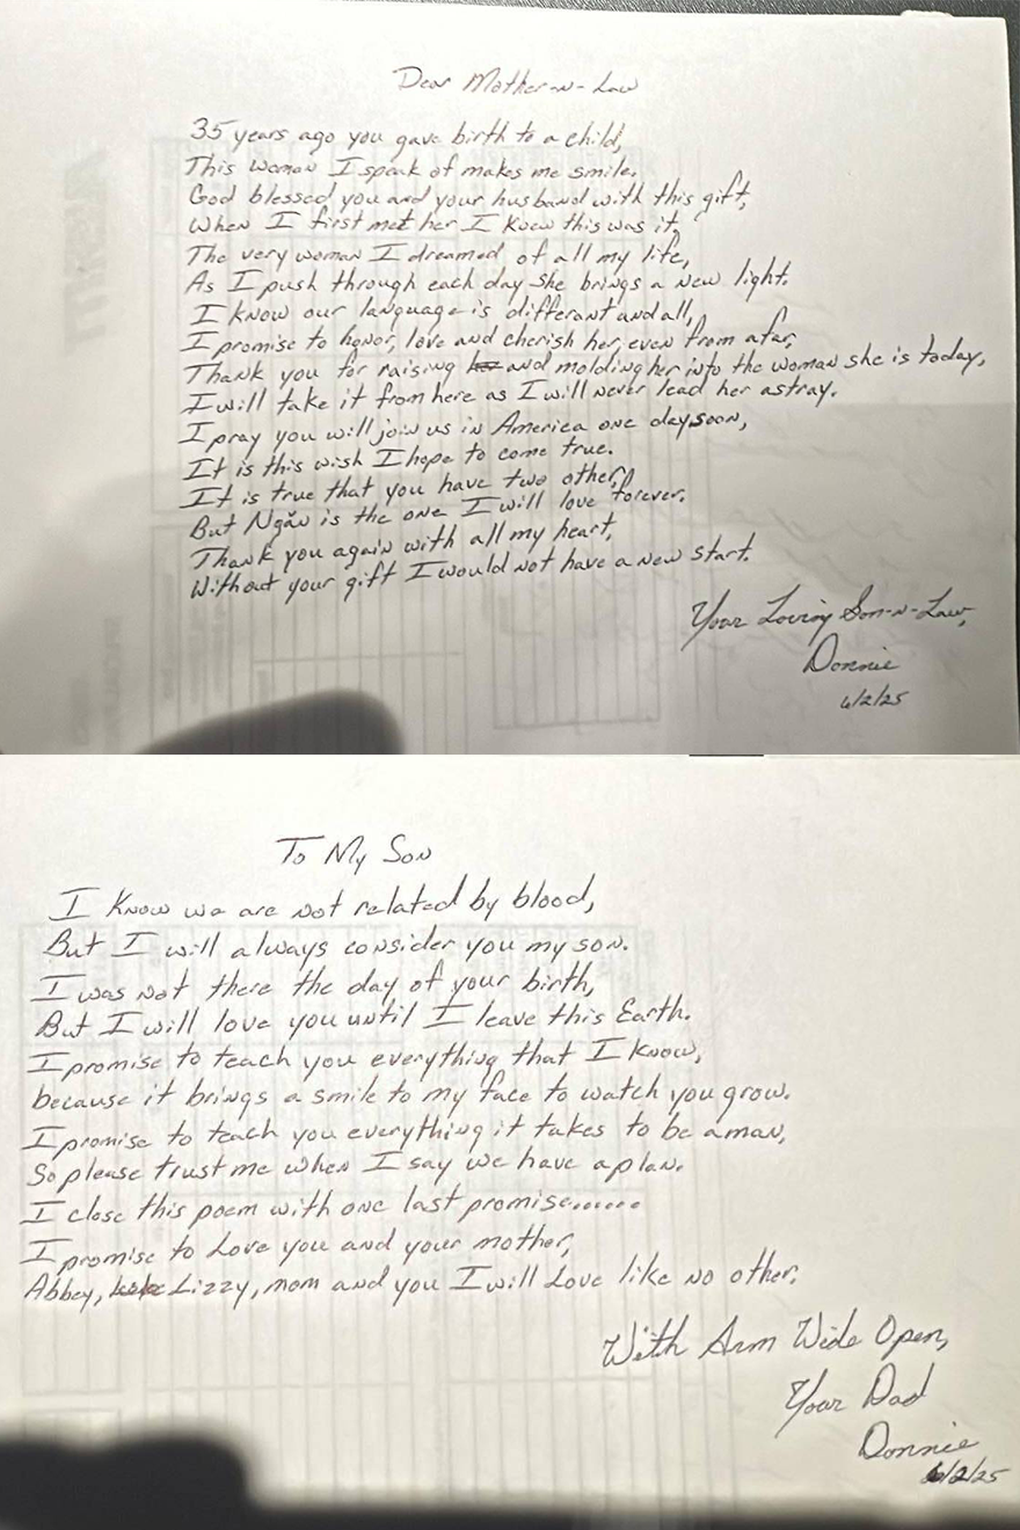 Dear Mother-n-Law
35 years ago you gave birth to a child,
This woman I speak of makes me smile.
God blessed you and your husband with this gift,
When I first met her I knew this was it,
The very woman I dreamed of all my life,
As I push through each day she brings a new light.
I know our language is different and all,
I promise to honor, love and cherish her, even from afar,
Thank you for raising and molding her into the woman she is today,
I will take it from here as I will never lead her astray.
I pray you will join us in America one day soon,
It is this wish I hope to come true.
It is true that you have two other,
But Ngăn is the one I will love forever.
Thank you again with all my heart,
Without your gift I would not have a new start.
Your Loving Son-n-Law,
Donnie
6/2/25
To My Son
I know we are not related by blood,
But I will always consider you my son.
I was not there the day of your birth,
But I will love you until I leave this Earth.
I promise to teach you everything that I know,
because it brings a smile to my face to watch you grow.
I promise to teach you everything it takes to be a man,
So please trust me when I say we have a plan.
I close this poem with one last promise.......
I promise to Love you and your mother,
Abbey, Lizzy, mom and you I will Love like no other.
With Arm Wide Open,
Your Dad
Donnie
6/2/25